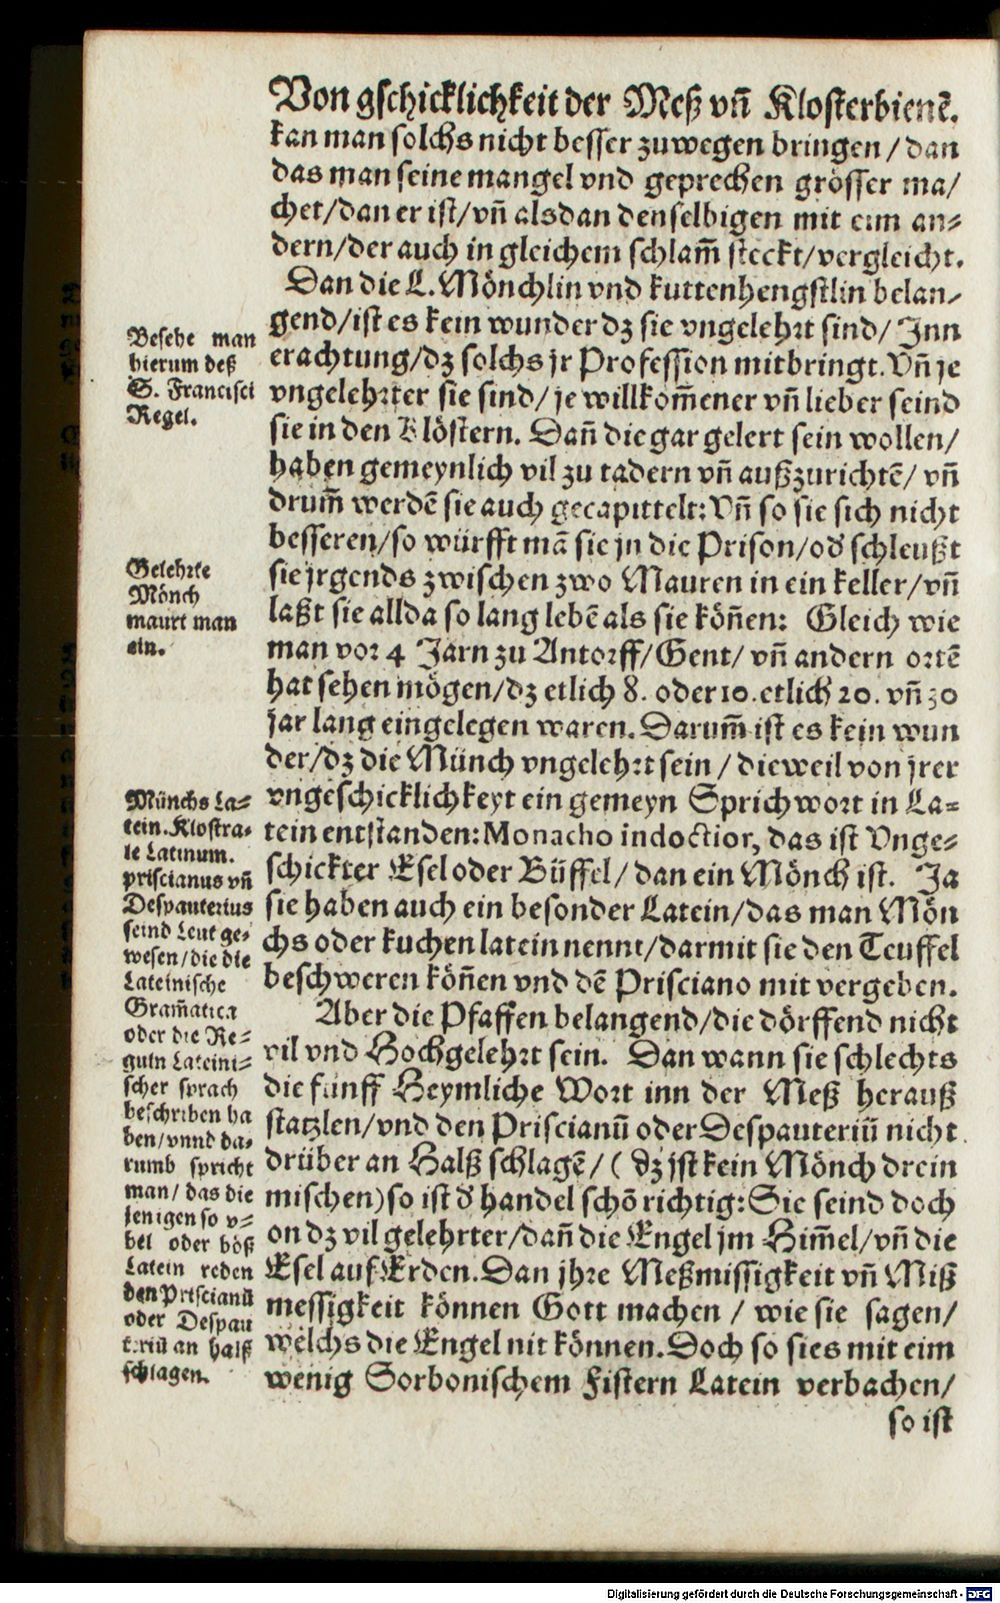 Von gschicklichkeit der Meß vñ Klosterbienẽ.
kan man solchs nicht besser zuwegen bringen / dan
das man seine mangel vnd geprechen grösser ma/
chet/dan er ist/vñ alsdan denselbigen mit eim an=
dern/der auch in gleichem schlam̃ steckt/vergleicht.
Dan die L. Mönchlin vnd kuttenhengstlin belan/
gend/ist es kein wunder dz sie vngelehrt sind/ Inn
erachtung/dz solchs jr Profession mitbringt. Vñ je
vngelehrter sie sind/ je willkom̃ener vñ lieber seind
sie in den Klöstern. Dañ die gar gelert sein wollen/
haben gemeynlich vil zu tadern vñ außzurichtẽ/ vñ
drum̃ werdẽ sie auch gecapittelt: Vñ so sie sich nicht
besseren/so würfft mã sie jn die Prison/od̕ schleußt
sie jrgends zwischen zwo Mauren in ein keller/vñ
laßt sie allda so lang lebẽ als sie köñen: Gleich wie
man vor 4 Jarn zu Antorff/Gent/ vñ andern ortẽ
hat sehen mögen/dz etlich 8. oder 10. etlich 20. vñ 30
jar lang eingelegen waren. Darum̃ ist es kein wun
der/dz die Münch vngelehrt sein / dieweil von jrer
vngeschicklichkeyt ein gemeyn Sprichwort in La=
tein entstanden: Monacho indoctior, das ist Vnge=
schickter Esel oder Büffel/ dan ein Mönch ist. Ja
sie haben auch ein besonder Latein/das man Mön
chs oder kuchen latein nennt/darmit sie den Teuffel
beschweren köñen vnd dẽ Prisciano mit vergeben.
Aber die Pfaffen belangend/die dörffend nicht
vil vnd Hochgelehrt sein. Dan wann sie schlechts
die fünff Heymliche Wort inn der Meß herauß
statzlen/vnd den Priscianũ oder Despauteriũ nicht
drüber an Halß schlagẽ/ ( dz jst kein Mönch drein
mischen) so ist d̕ handel schõ richtig: Sie seind doch
on dz vil gelehrter/dañ die Engel jm Him̃el/vñ die
Esel auf Erden. Dan jhre Meßmissigkeit vñ Miß
messigkeit können Gott machen / wie sie sagen/
welchs die Engel nit können. Doch so sies mit eim
wenig Sorbonischem Fistern Latein verbachen/
so ist
Besehe man
hierum deß
S. Francisci
Regel.
Gelehrte
Mönch
maurt man
ein.
Münchs La=
tein. Klostra=
le Latinum.
priscianus vñ
Despauterius
seind Leut ge=
wesen/die die
Lateinische
Gram̃atica
oder die Re=
guln Lateini=
scher sprach
beschriben ha
ben/vnnd da=
rumb spricht
man/ das die
jenigen so v=
bel oder böß
Latein reden
den Priscianũ
oder Despau
teriũ an halß
schlagen.
Digitalisierung gefördert durch die Deutsche Forschungsgemeinschaft - DFG